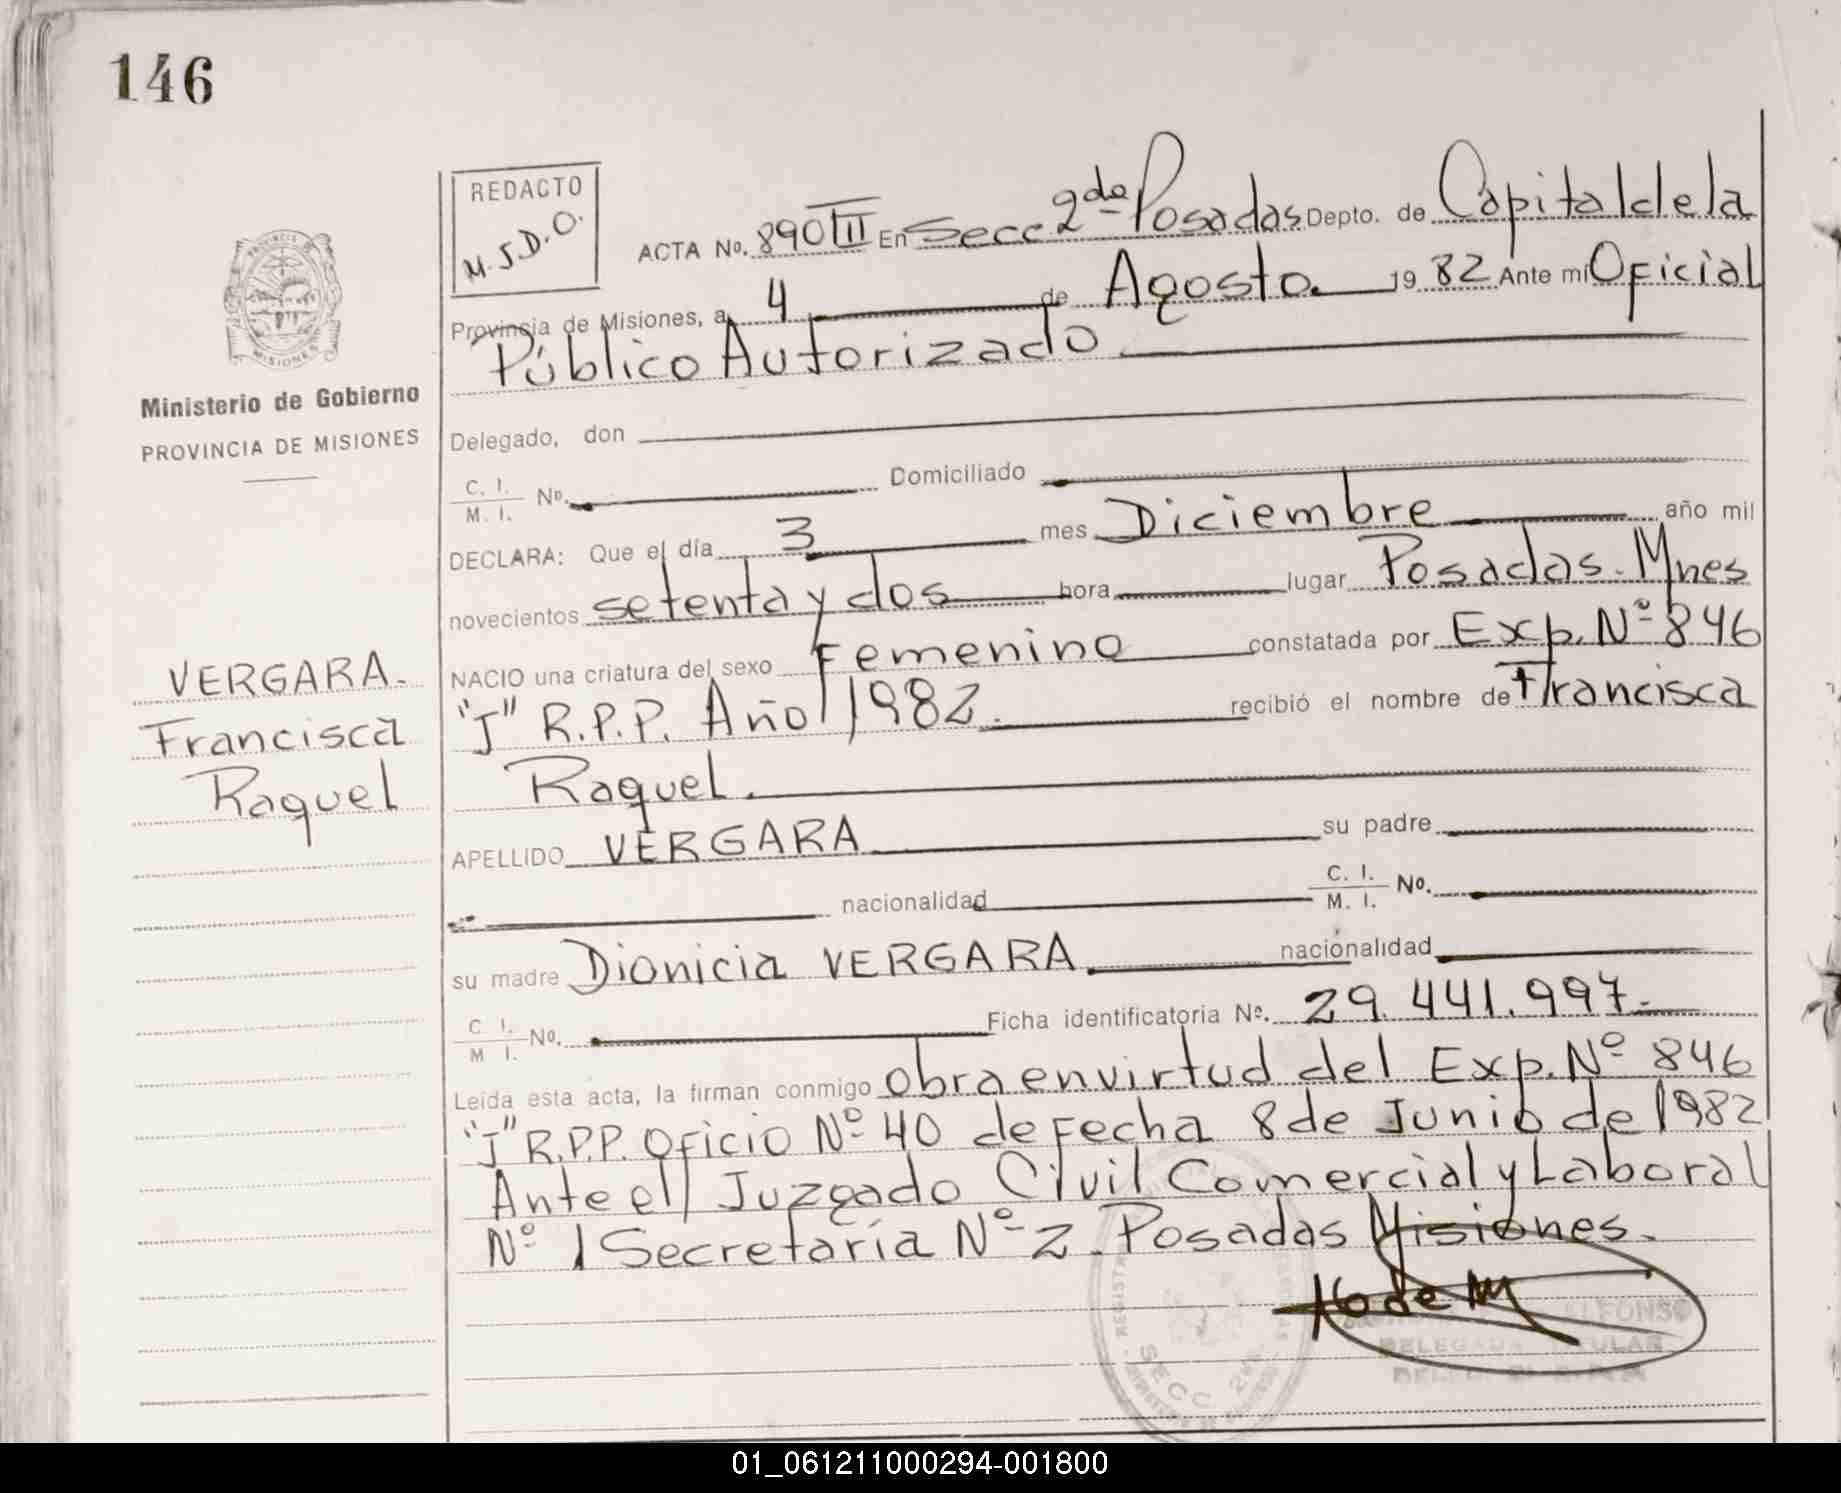 146
REDACTO
M.J.D.O.
ACTA No. 890 III En Secc 2da Posadas Depto. de Capital de la
Provincia de Misiones, a 4 de Agosto. 1982 Ante mí Oficial
Público Autorizado
PROVINCIA DE
MISIONES
Ministerio de Gobierno
PROVINCIA DE MISIONES
Delegado, don
C. I.
M. I. No. Domiciliado
DECLARA: Que el día 3 mes Diciembre año mil
novecientos setenta y dos hora lugar Posadas. Mnes
VERGARA.
Francisca
Raquel
NACIO una criatura del sexo Femenino constatada por Exp. Nº 846
"J" R.P.P. Año 1982. recibió el nombre de Francisca
Raquel.
APELLIDO VERGARA su padre
nacionalidad C. I.
M. I. No.
su madre Dionicia VERGARA nacionalidad
C. I.
M I. No. Ficha identificatoria Nº. 29.441.997.-
Leída esta acta, la firman conmigo obra en virtud del Exp. Nº 846
"J" R.P.P. Oficio Nº 40 de Fecha 8 de Junio de 1982
Ante el Juzgado Civil Comercial y Laboral
Nº 1 Secretaría Nº 2. Posadas Misiones.
ALFONSO
DELEGADA TITULAR
SECC 2da
01_061211000294-001800